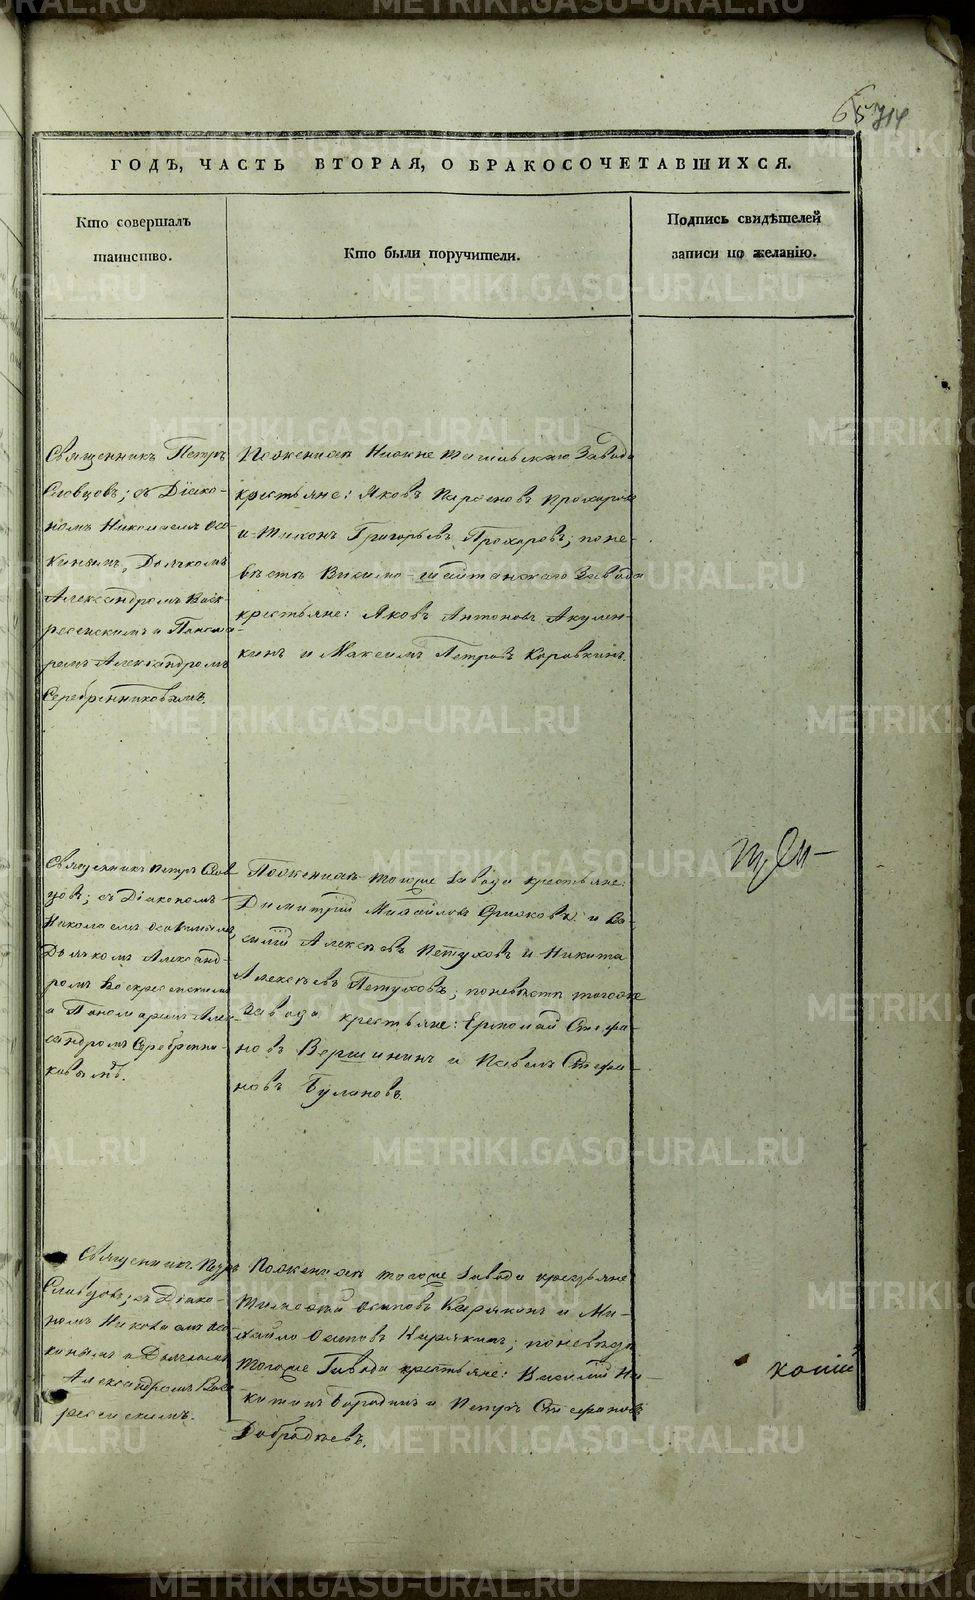 714
ГОДЪ, ЧАСТЬ ВТОРАЯ, О БРАКОСОЧЕТАВШИХСЯ.
Кто совершалъ
таинство.
Кто были поручители.
Подпись свидѣтелей
записи по желанію.
Священникъ Петръ
Словцовъ; съ Діако-
номъ Николаемъ Осо-
кинымъ, Дьячкомъ
Александромъ Воск-
ресенскимъ и Понома-
ремъ Александромъ
Серебренниковымъ.
По женихѣ Нижне Тагильскаго Завода
крестьяне: Яковъ Парѳеновъ Прохоровъ
и Тихонъ Григорьевъ Прохоровъ; по не-
вѣстѣ Висимо-шайтанскаго Завода
крестьяне: Яковъ Антоновъ Акулен-
кинъ и Максимъ Петровъ Коровкинъ.
Священникъ Петръ Слов
цовъ; съ Діакономъ
Николаемъ Осокинымъ,
Дьячкомъ Александ-
ромъ Воскресенскимъ
и Пономаремъ Алек-
сандромъ Серебренни-
ковымъ.
По женихѣ тогоже Завода крестьяне:
Димитрій Михайловъ и Ва-
силій Алексѣевъ Пѣтуховъ и Никита
Алексѣевъ Пѣтуховъ; по невѣстѣ тогоже
завода крестьяне: Ермолай Стефа-
новъ Вершининъ и Павелъ Стефа-
новъ Булановъ.
Священникъ Петръ
Словцовъ; съ Діако-
номъ Николаемъ Осо-
кинымъ и Дьячкомъ
Александромъ Воск-
ресенскимъ.
По женихѣ тогоже Завода крестьяне
Тимофей Осиповъ Карякинъ и Ми-
хайло Осиповъ Карякинъ; по невѣстѣ
тогоже Завода крестьяне: Василій Ни-
китинъ Бородинъ и Петръ Стефановъ
Добродѣевъ.
копіи
METRIKI.GASO-URAL.RU